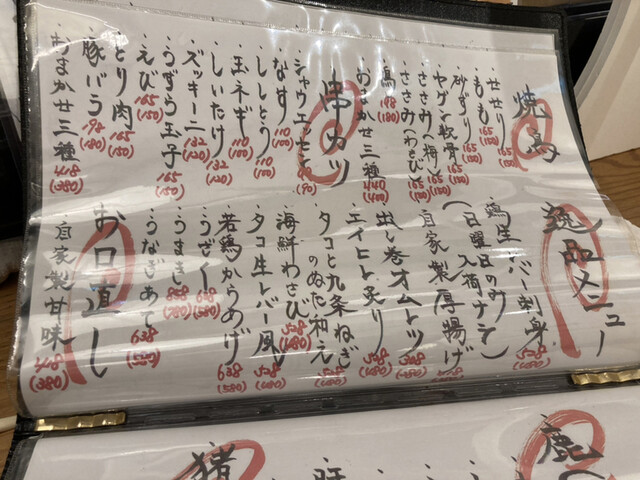 焼鳥
・せせり 165 (150)
・もも 165 (150)
・砂ずり 165 (150)
・ヤゲン軟骨 165 (150)
・ささみ(梅) 165 (150)
・ささみ(わさび) 165 (150)
おまかせ三種 440 (400)
串カツ
・シャウエッセン
・なす 110 (100)
・ししとう 110 (100)
・玉ネギ 110 (100)
・しいたけ 132 (120)
・ズッキーニ 132 (120)
・うずら玉子 165 (150)
・えび 165 (150)
・とり肉 165 (150)
・豚バラ 198 (180)
・おまかせ三種 418 (380)
逸品メニュー
・鶏生レバー刺身 528 (480)
(日曜日のみ入荷ナシ)
・自家製厚揚げ
・出し巻オムレツ
・エイヒレ炙り 528 (480)
・タコと九条ねぎのぬた和え 528 (480)
・海鮮わさび 528 (480)
・タコ生レバー風 528 (480)
・若鶏からあげ 638 (580)
・うざく 638 (580)
・うまき 858 (780)
・うなぎあて 638 (580)
お口直し
・自家製甘味 418 (380)
・鹿
・猪